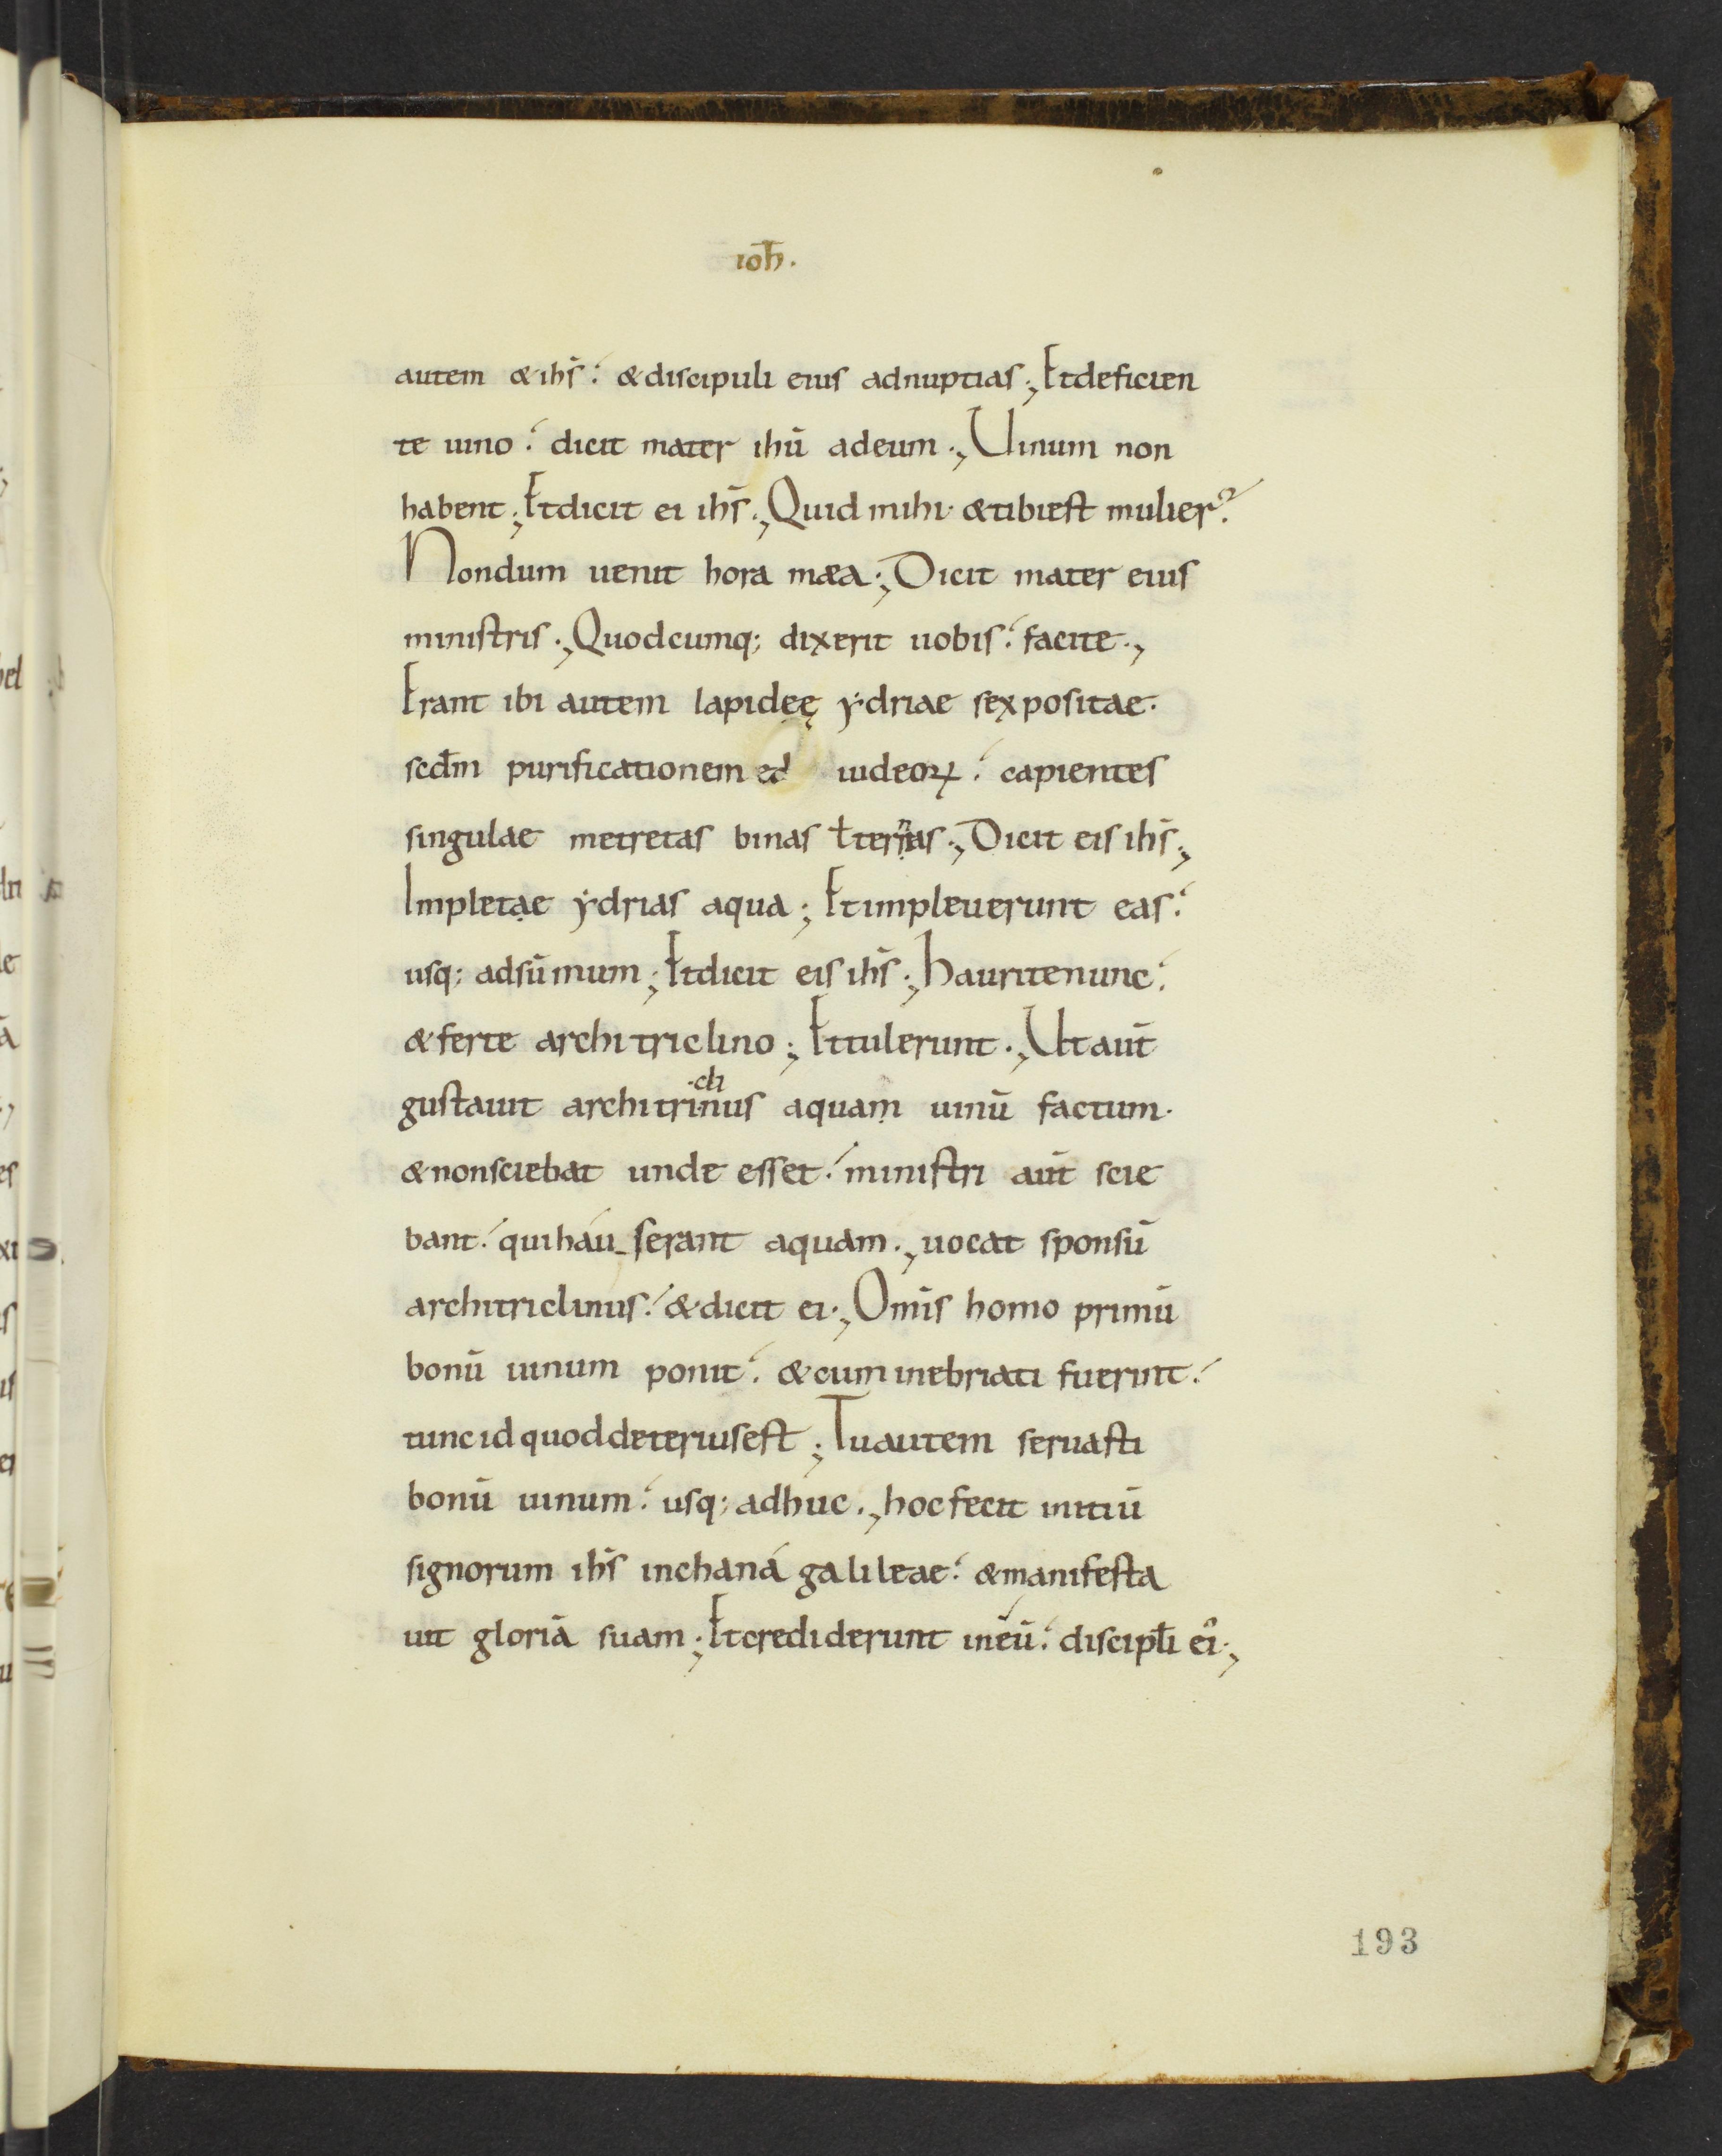 ioħ.
autem & ihs̄: & discipuli eius adnuptias; Etdeficien
te uino: dicit mater ihū adeum; Uinum non
habent; Etdicit ei ihs̄; Quid mihi· &tibiest mulier?
Nondum uenit hora mæa; Dicit mater eius
ministris; Quodcumq; dixerit uobis: facite;
Erant ibi autem lapideę ydriae sex positae·
scdm̄ purificationem iudeoꝝ: capientes
singulae metretas binas ł ternas; Dicit eis ihs̄;
Impletae ydrias aqua; Etimpleuerunt eas:
usq; adsūmum; Etdicit eis ihs̄; Hauritenunc:
& ferte architriclino; Ettulerunt; Ut aūt
gustauit architriclinus aquam uinū factum·
& nonsciebat unde esset: ministri aūt scie
bant: quihau-serant aquam; uocat sponsū
architriclinus: & dicit ei; Om̄is homo primū
bonū uinum ponit: & cum inebriati fuerint:
tunc id quod deteriusest; Tuautem seruasti
bonū uinum: usq; adhuc; hocfecit initiū
signorum ihs̄ inchaná galileae: & manifesta
uit gloriā suam; Etcrediderunt ineū: discipłi ei᾿;
193